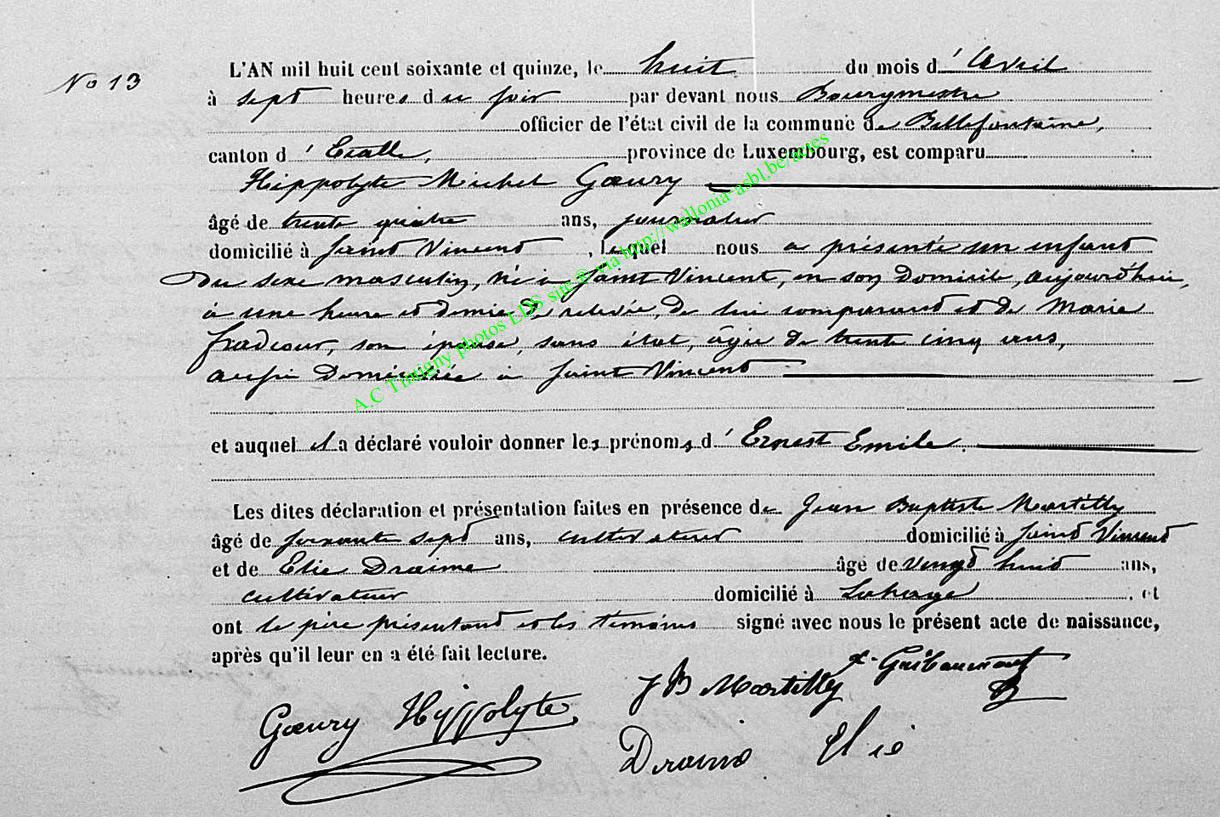 No 13
L'AN mil huit cent soixante et quinze, le huit du mois d'Avril
à sept heures du soir par devant nous Bourgmestre
officier de l'état civil de la commune de Bellefontaine,
canton d'Etalle, province de Luxembourg, est comparu
Hippolyte Michel Gœury
âgé de trente quatre ans, journalier
domicilié à Saint Vincent, lequel nous a présenté un enfant
du sexe masculin, né à Saint Vincent, en son domicile, aujourd'hui,
à une heure et demie de relevée, de lui comparant et de Marie
Fradcour, son épouse, sans état, âgée de trente cinq ans,
aussi domiciliée à Saint Vincent
et auquel il a déclaré vouloir donner les prénoms d'Ernest Emile.
Les dites déclaration et présentation faites en présence de Jean Baptiste Martilly
âgé de soixante sept ans, cultivateur domicilié à Saint Vincent
et de Elie Draime âgé de vingt huit ans,
cultivateur domicilié à Lahage, et
ont le père présentant et les témoins signé avec nous le présent acte de naissance,
après qu'il leur en a été fait lecture.
Gœury Hippolyte
J B Martilly
Draime Elie
A.C Tintigny photos LDS sur via http://wallonia-asbl.be/actes